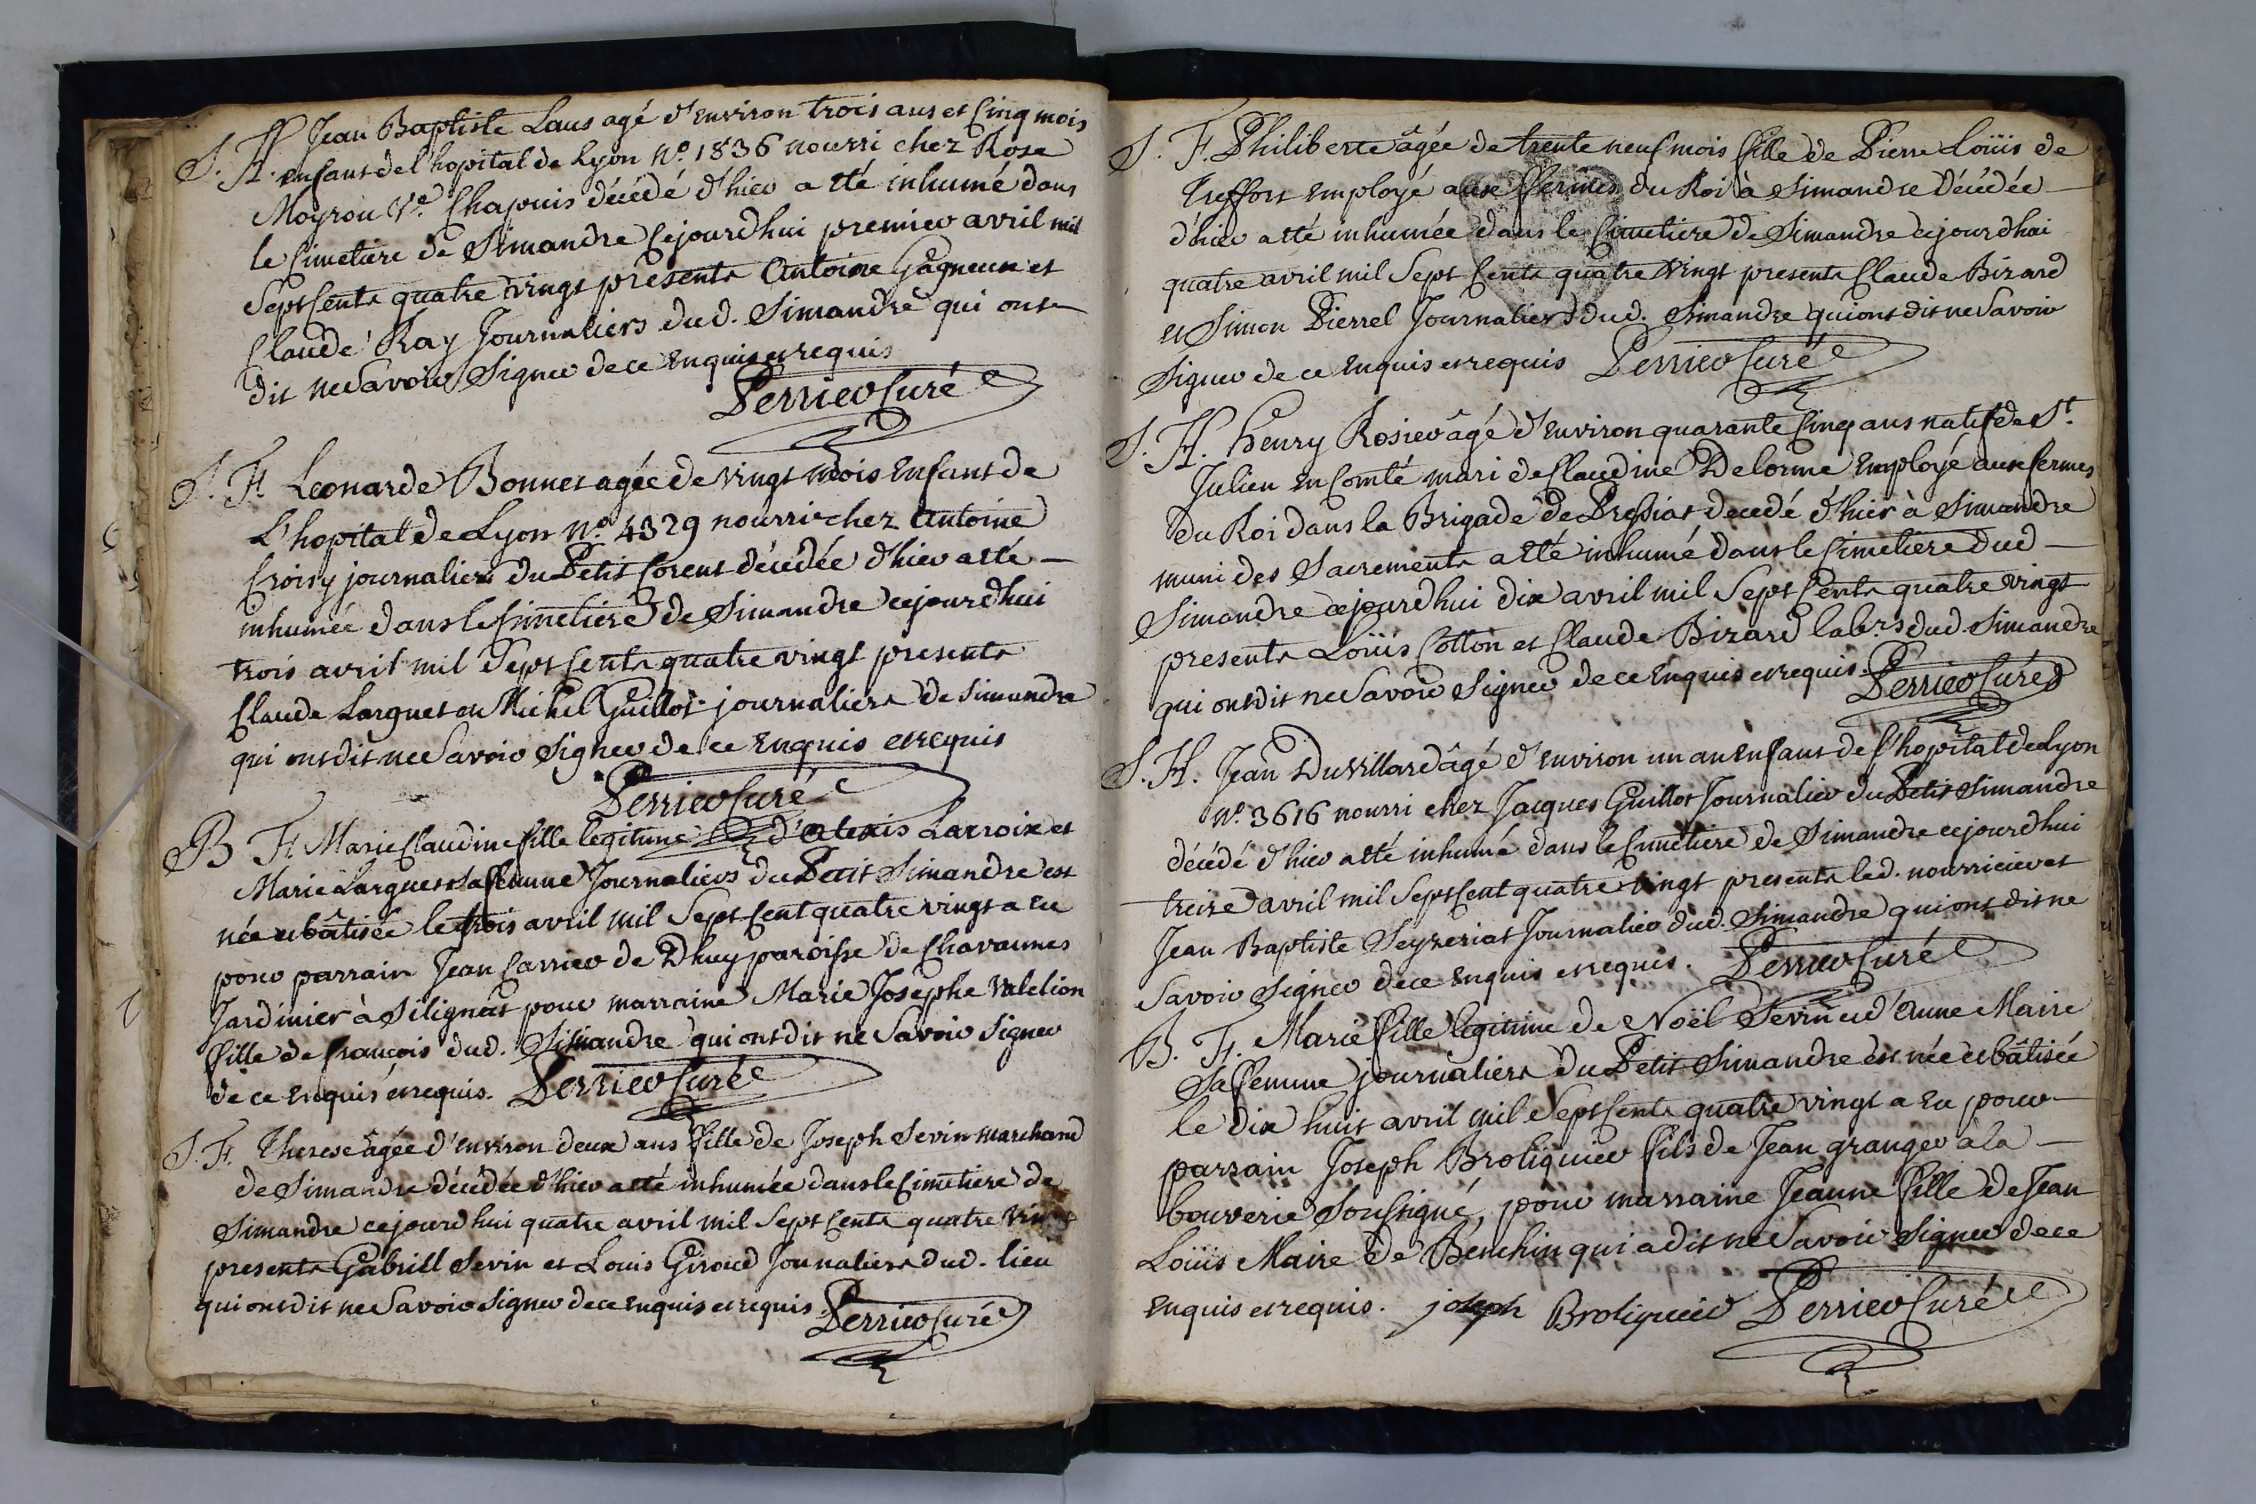 S. H. Jean Baptiste Laus agé d'environ trois ans et Cinq mois
enfant de l'hopital de Lyon N.o 1836 nourri chez Rose
Moyrou V.e Chapuis décédé d'hier a eté inhumé dans
le Cimetiere de Simandre Cejourdhui premier avril mil
Sept Cents quatre vingt presents Antoine Gagneux et
Claude Ray Journaliers dud. Simandre qui ont
dit ne Savoir Signer de ce enquis et requis
Perrier Curé
S. F. Leonarde Bonnet agée de vingt mois Enfant de
L'hopital de Lyon N.o 4329 nourrie chez Antoine
Croisy journalier du Petit Corent décédée d'hier a eté
inhumée dans le Cimetiere de Simandre cejourdhui
trois avril mil Sept Cents quatre vingt presents
Claude Larguet et Michel Guillot journaliers de Simandre
qui ont dit ne Savoir Signer de ce enquis et requis
Perrier Curé
B F. Marie Claudine fille legitime d'Alexis Lacroix et
Marie Larguet Sa femme Journaliers du Petit Simandre est
née et bâtisée le trois avril mil Sept Cent quatre vingt a eu
pour parrain Jean Carrier de Dhuy paroisse de Chavannes
Jardinier à Sélignat pour marraine Marie Josephe Valelion
fille de françois dud. Simandre qui ont dit ne Savoir Signer
de ce enquis et requis. Perrier Curé
S. F. Therese âgée d'environ deux ans fille de Joseph Sevin marchand
de Simandre décédée d'hier a eté inhumée dans le Cimetiere de
Simandre cejourdhui quatre avril mil Sept Cents quatre vingt
presents Gabriel Sevin et Louis Giroud Journaliers dud. lieu
qui ont dit ne Savoir Signer de ce enquis et requis. Perrier Curé
S. F. Philiberte âgée de trente neuf mois fille de Pierre Loüis de
Treffort Employé aux fermes du Roi à Simandre Décédée
d'hier a eté inhumée dans le Cimetiere de Simandre cejourdhui
quatre avril mil Sept Cents quatre vingt presents Claude Bizard
et Simon Pierrel Journaliers dud. Simandre qui ont dit ne Savoir
Signer de ce enquis et requis Perrier Curé
S. H. henry Rosier âgé d'environ quarante Cinq ans natif de St.
Julien en Comté mari de Claudine Delorme Employé aux fermes
du Roi dans la Brigade de Pressiat decedé d'hier à Simandre
muni des Sacrements a eté inhumé dans le Cimetiere dud
Simandre cejourdhui dix avril mil Sept Cents quatre vingt
presents Loüis Cotton et Claude Bizard labrs dud Simandre
qui ont dit ne Savoir Signer de ce enquis et requis. Perrier Curé
S. H. Jean Duvillard âgé d'environ un an Enfant de l'hopital de Lyon
N.o 3616 nourri chez Jacques Guillot Journalier du Petit Simandre
décédé d'hier a eté inhumé dans le Cimetiere de Simandre cejourdhui
treize avril mil Sept Cent quatre vingt presents led. nourricier et
Jean Baptiste Seyzeriat Journalier dud. Simandre qui ont dit ne
Savoir Signer de ce enquis et requis. Perrier Curé
B. F. Marie fille legitime de Noël Sevin et d'Anne Maire
Sa femme journaliers du Petit Simandre est née et bâtisée
le dix huit avril mil Sept Cents quatre vingt a eu pour
parrain Joseph Broliquier fils de Jean granger à la
bouverie Soussigné, pour marraine Jeanne fille de Jean
Loüis Maire de Benchin qui a dit ne Savoir Signer de ce
enquis et requis. joseph Broliquier Perrier Curé